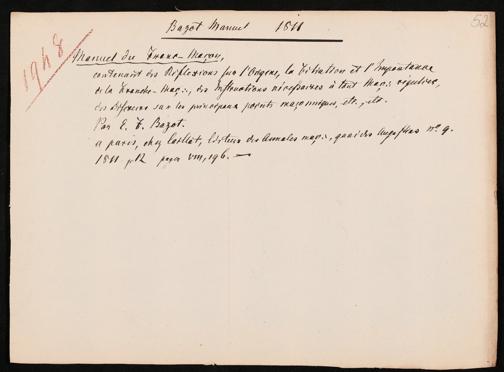 Bazot Manuel 1811
52
1948
Manuel du Franc-Maçon,
contenant des Réflexions sur l'Origine, la Création et l'Importance
de la Franche-Maç∴, des Instructions nécessaires à tout Maç∴ régulier,
des Discours sur les principaux points maçonniques, etc., etc.
Par E. F. Bazot.
à paris, chez Caillot, Éditeur des Annales maç∴, quai des Augustins n° 9.
1811 12 pages VIII, 196. —